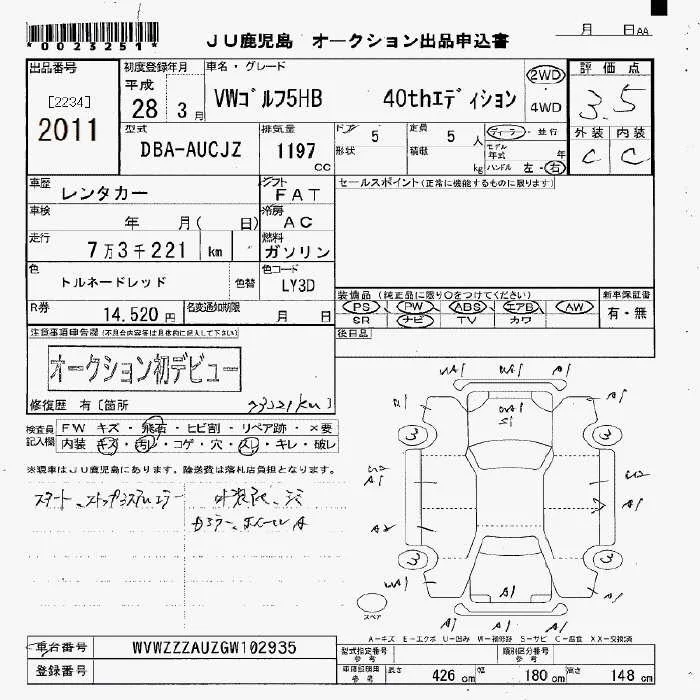 *0023251*
JU鹿児島 オークション出品申込書
月 日AA
出品番号
[2234]
2011
初度登録年月
平成
28 3月
車名・グレード
VWゴルフ5HB 40thエディション
2WD
4WD
評価点
3.5
外装 内装
C C
型式
DBA-AUCJZ
排気量
1197
cc
ドア 5
形状
定員 5 人
積載 kg
ディーラー・並行
モデル年式 年
ハンドル 左・右
車歴
レンタカー
シフト
FAT
セールスポイント(正常に機能するものに限ります)
車検
年 月( 日)
冷房
AC
走行
7万3千221 km
燃料
ガソリン
色
トルネードレッド
色替
色コード
LY3D
R券
14.520円
名変通知期限
月 日
装備品(純正品に限り○をつけてください)
PS PW ABS エアB AW
SR ナビ TV カワ
新車保証書
有・無
注意事項申告欄(不具合内容等は具体的に記入して下さい)
後日品
オークション初デビュー
修復歴 有[箇所 ]
73221km
検査員
記入欄
FW キズ・飛石・ヒビ割・リペア跡・×要
内装・キズ・汚レ・コゲ・穴・スレ・キレ・破レ
※現車はJU鹿児島にあります。陸送費は落札店負担となります。
スタート、ストップシステムエラー
A1 A1
A1
S1
3 3
A1 A1
A2
3 3
A1
A1 A1 A1
スペア
A-キズ E-エクボ U-凹み W-補修跡 S-サビ C-腐食 XX-交換済
車台番号
WVWZZZAUZGW102935
登録番号
型式指定番号
参考
類別区分番号
参考
車庫証明用
参考
長さ 426 cm
幅 180 cm
高さ 148 cm